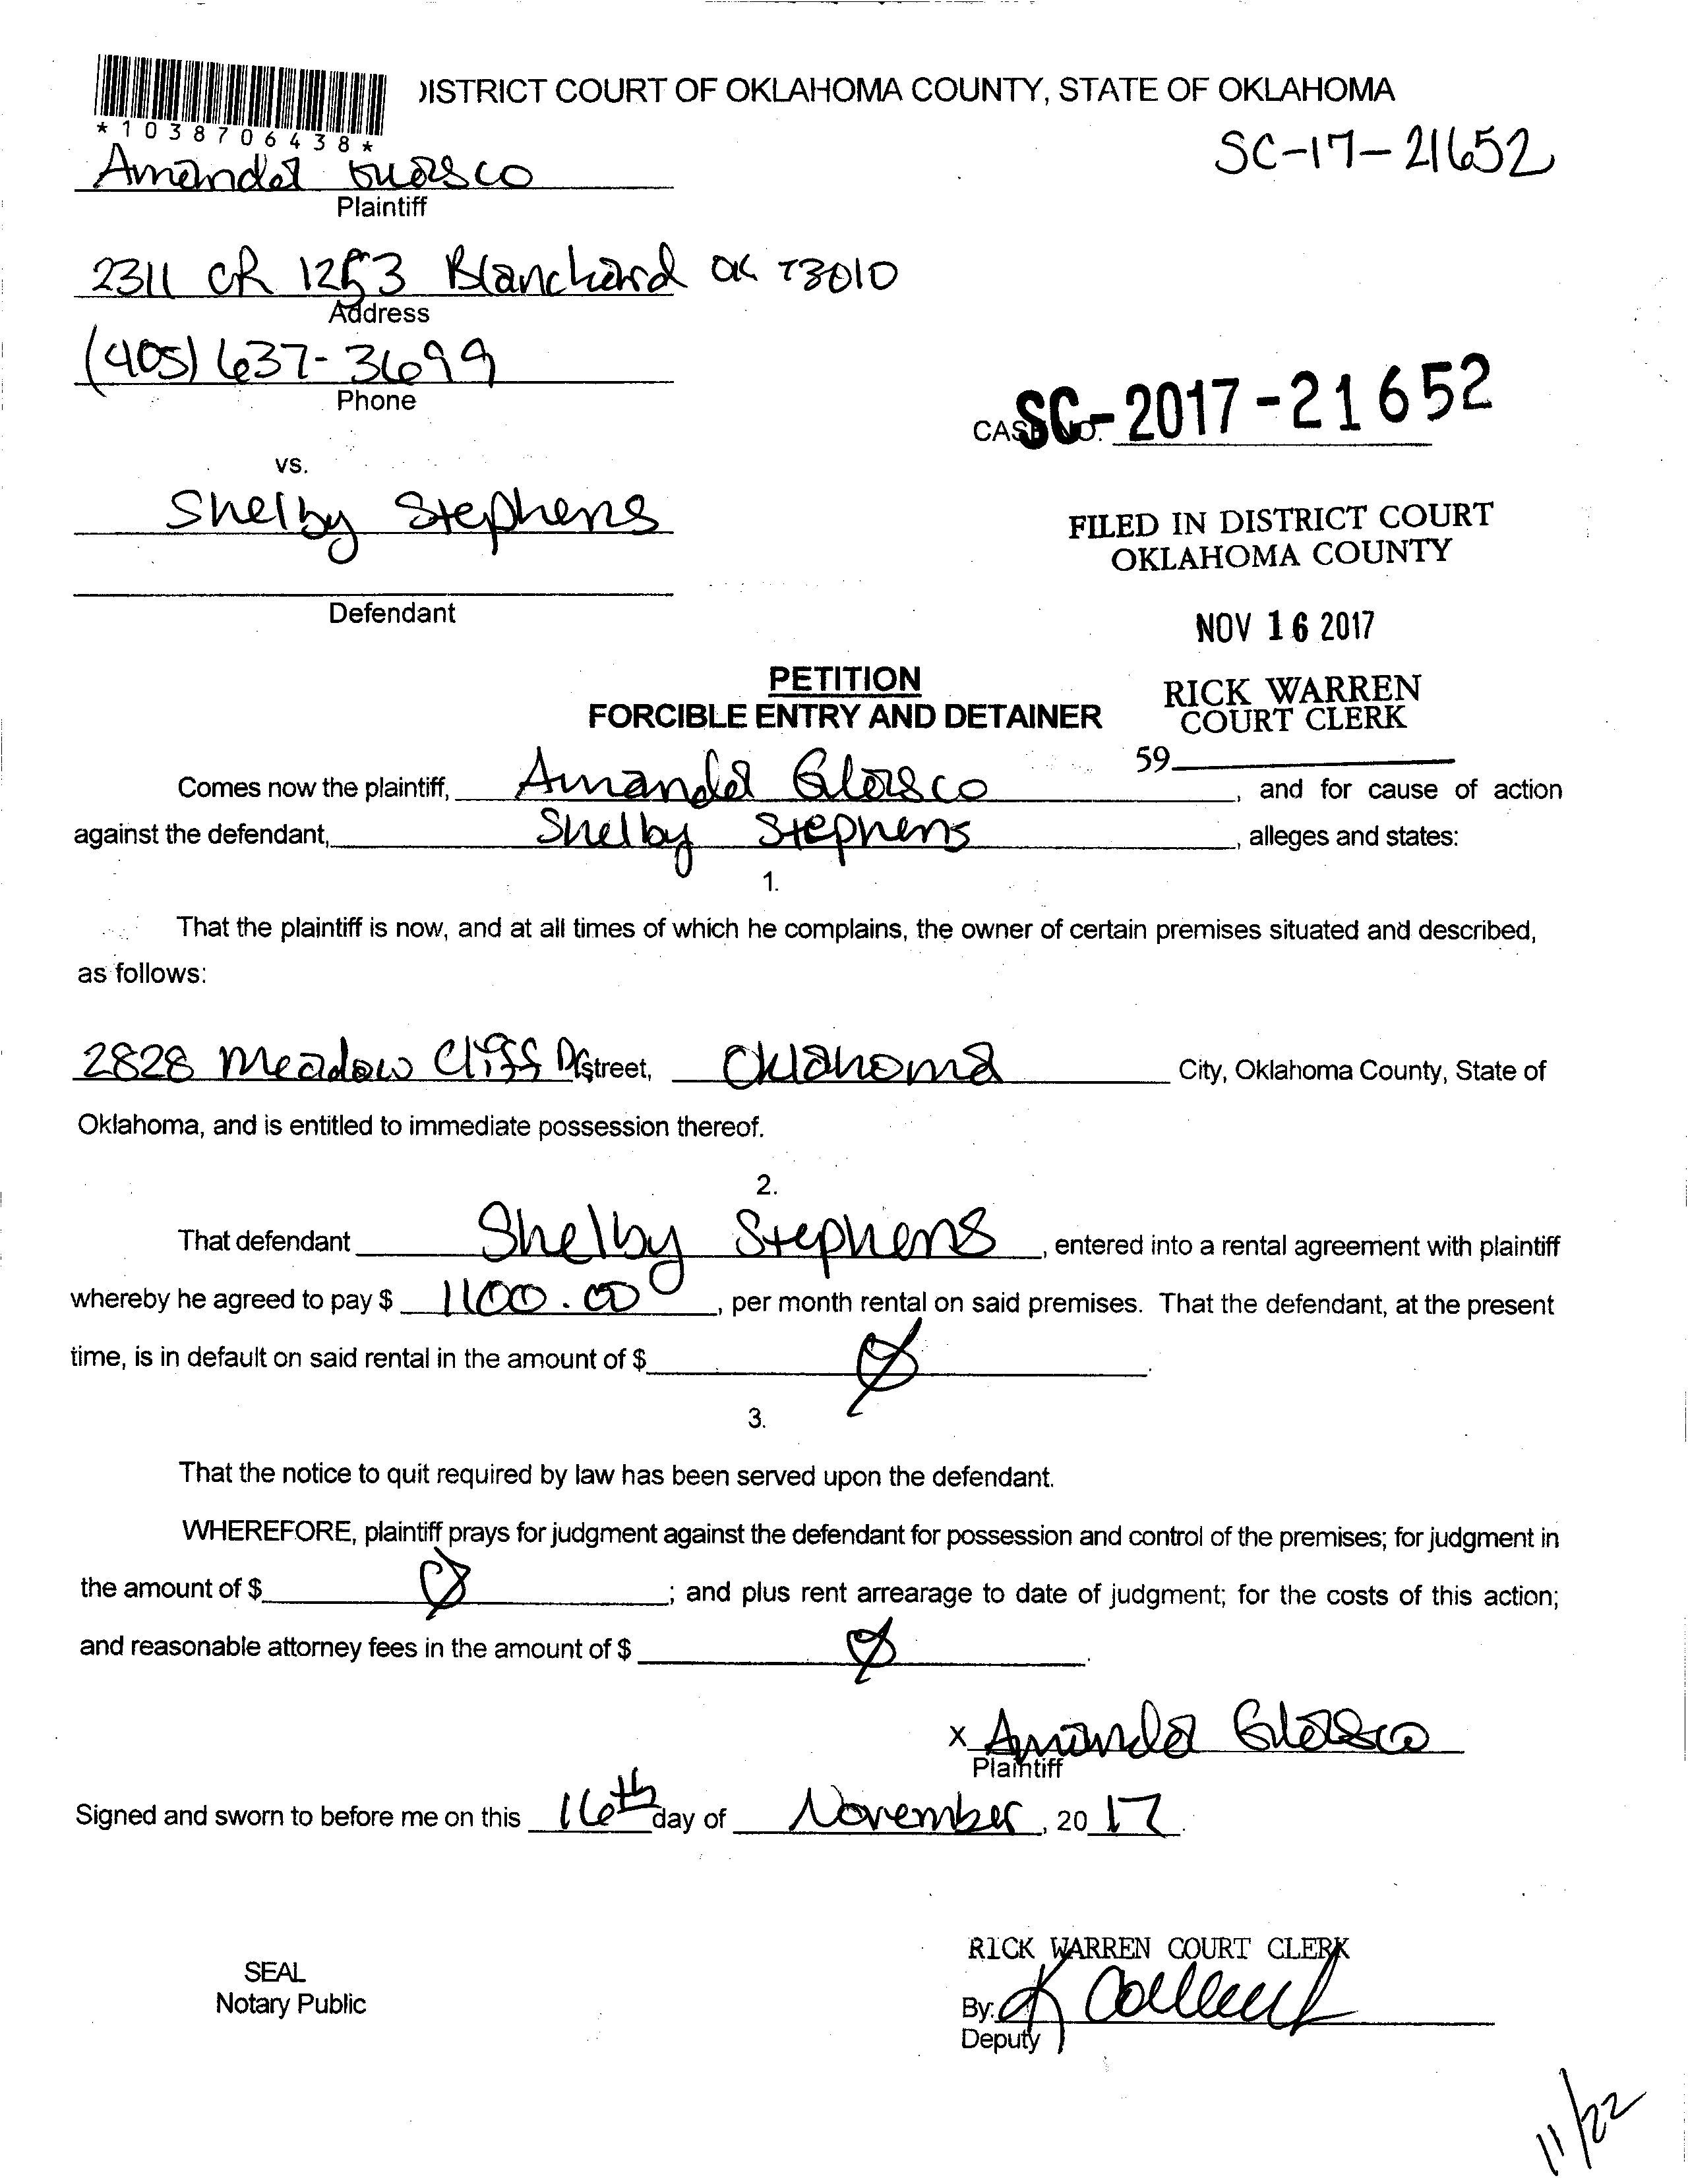 DISTRICT COURT OF OKLAHOMA COUNTY, STATE OF OKLAHOMA
*1038706438*
SC-17-21652
Amanda Glasco
Plaintiff
2311 CR 1253 Blanchard OK 73010
Address
(405) 637-3699
Phone
CASE NO. SC-2017-21652
vs.
Shelby Stephens
FILED IN DISTRICT COURT
OKLAHOMA COUNTY
Defendant
NOV 16 2017
PETITION
FORCIBLE ENTRY AND DETAINER
RICK WARREN
COURT CLERK
59
Comes now the plaintiff, Amanda Glasco, and for cause of action
against the defendant, Shelby Stephens, alleges and states:
1.
That the plaintiff is now, and at all times of which he complains, the owner of certain premises situated and described,
as follows:
2828 Meadow Cliff Dr street, Oklahoma City, Oklahoma County, State of
Oklahoma, and is entitled to immediate possession thereof.
2.
That defendant Shelby Stephens, entered into a rental agreement with plaintiff
whereby he agreed to pay $ 1100.00, per month rental on said premises. That the defendant, at the present
time, is in default on said rental in the amount of $ Ø.
3.
That the notice to quit required by law has been served upon the defendant.
WHEREFORE, plaintiff prays for judgment against the defendant for possession and control of the premises; for judgment in
the amount of $ Ø; and plus rent arrearage to date of judgment; for the costs of this action;
and reasonable attorney fees in the amount of $ Ø.
x Amanda Glasco
Plaintiff
Signed and sworn to before me on this 16th day of November, 2017.
RICK WARREN COURT CLERK
SEAL
Notary Public
By: K
Deputy
11/22